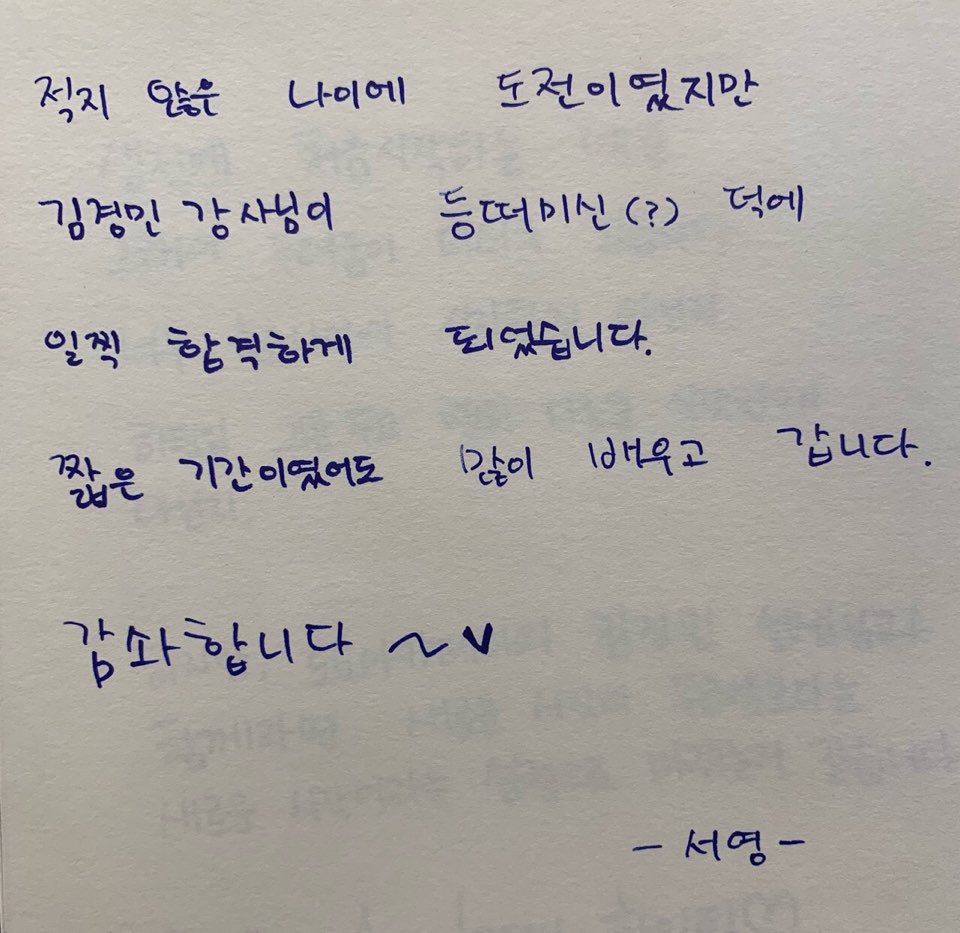 적지 않은 나이에 도전이였지만
김경민 강사님이 등떠미신(?) 덕에
일찍 합격하게 되었습니다.
짧은 기간이였어도 많이 배우고 갑니다.
감솨합니다 ~♥
- 서영 -